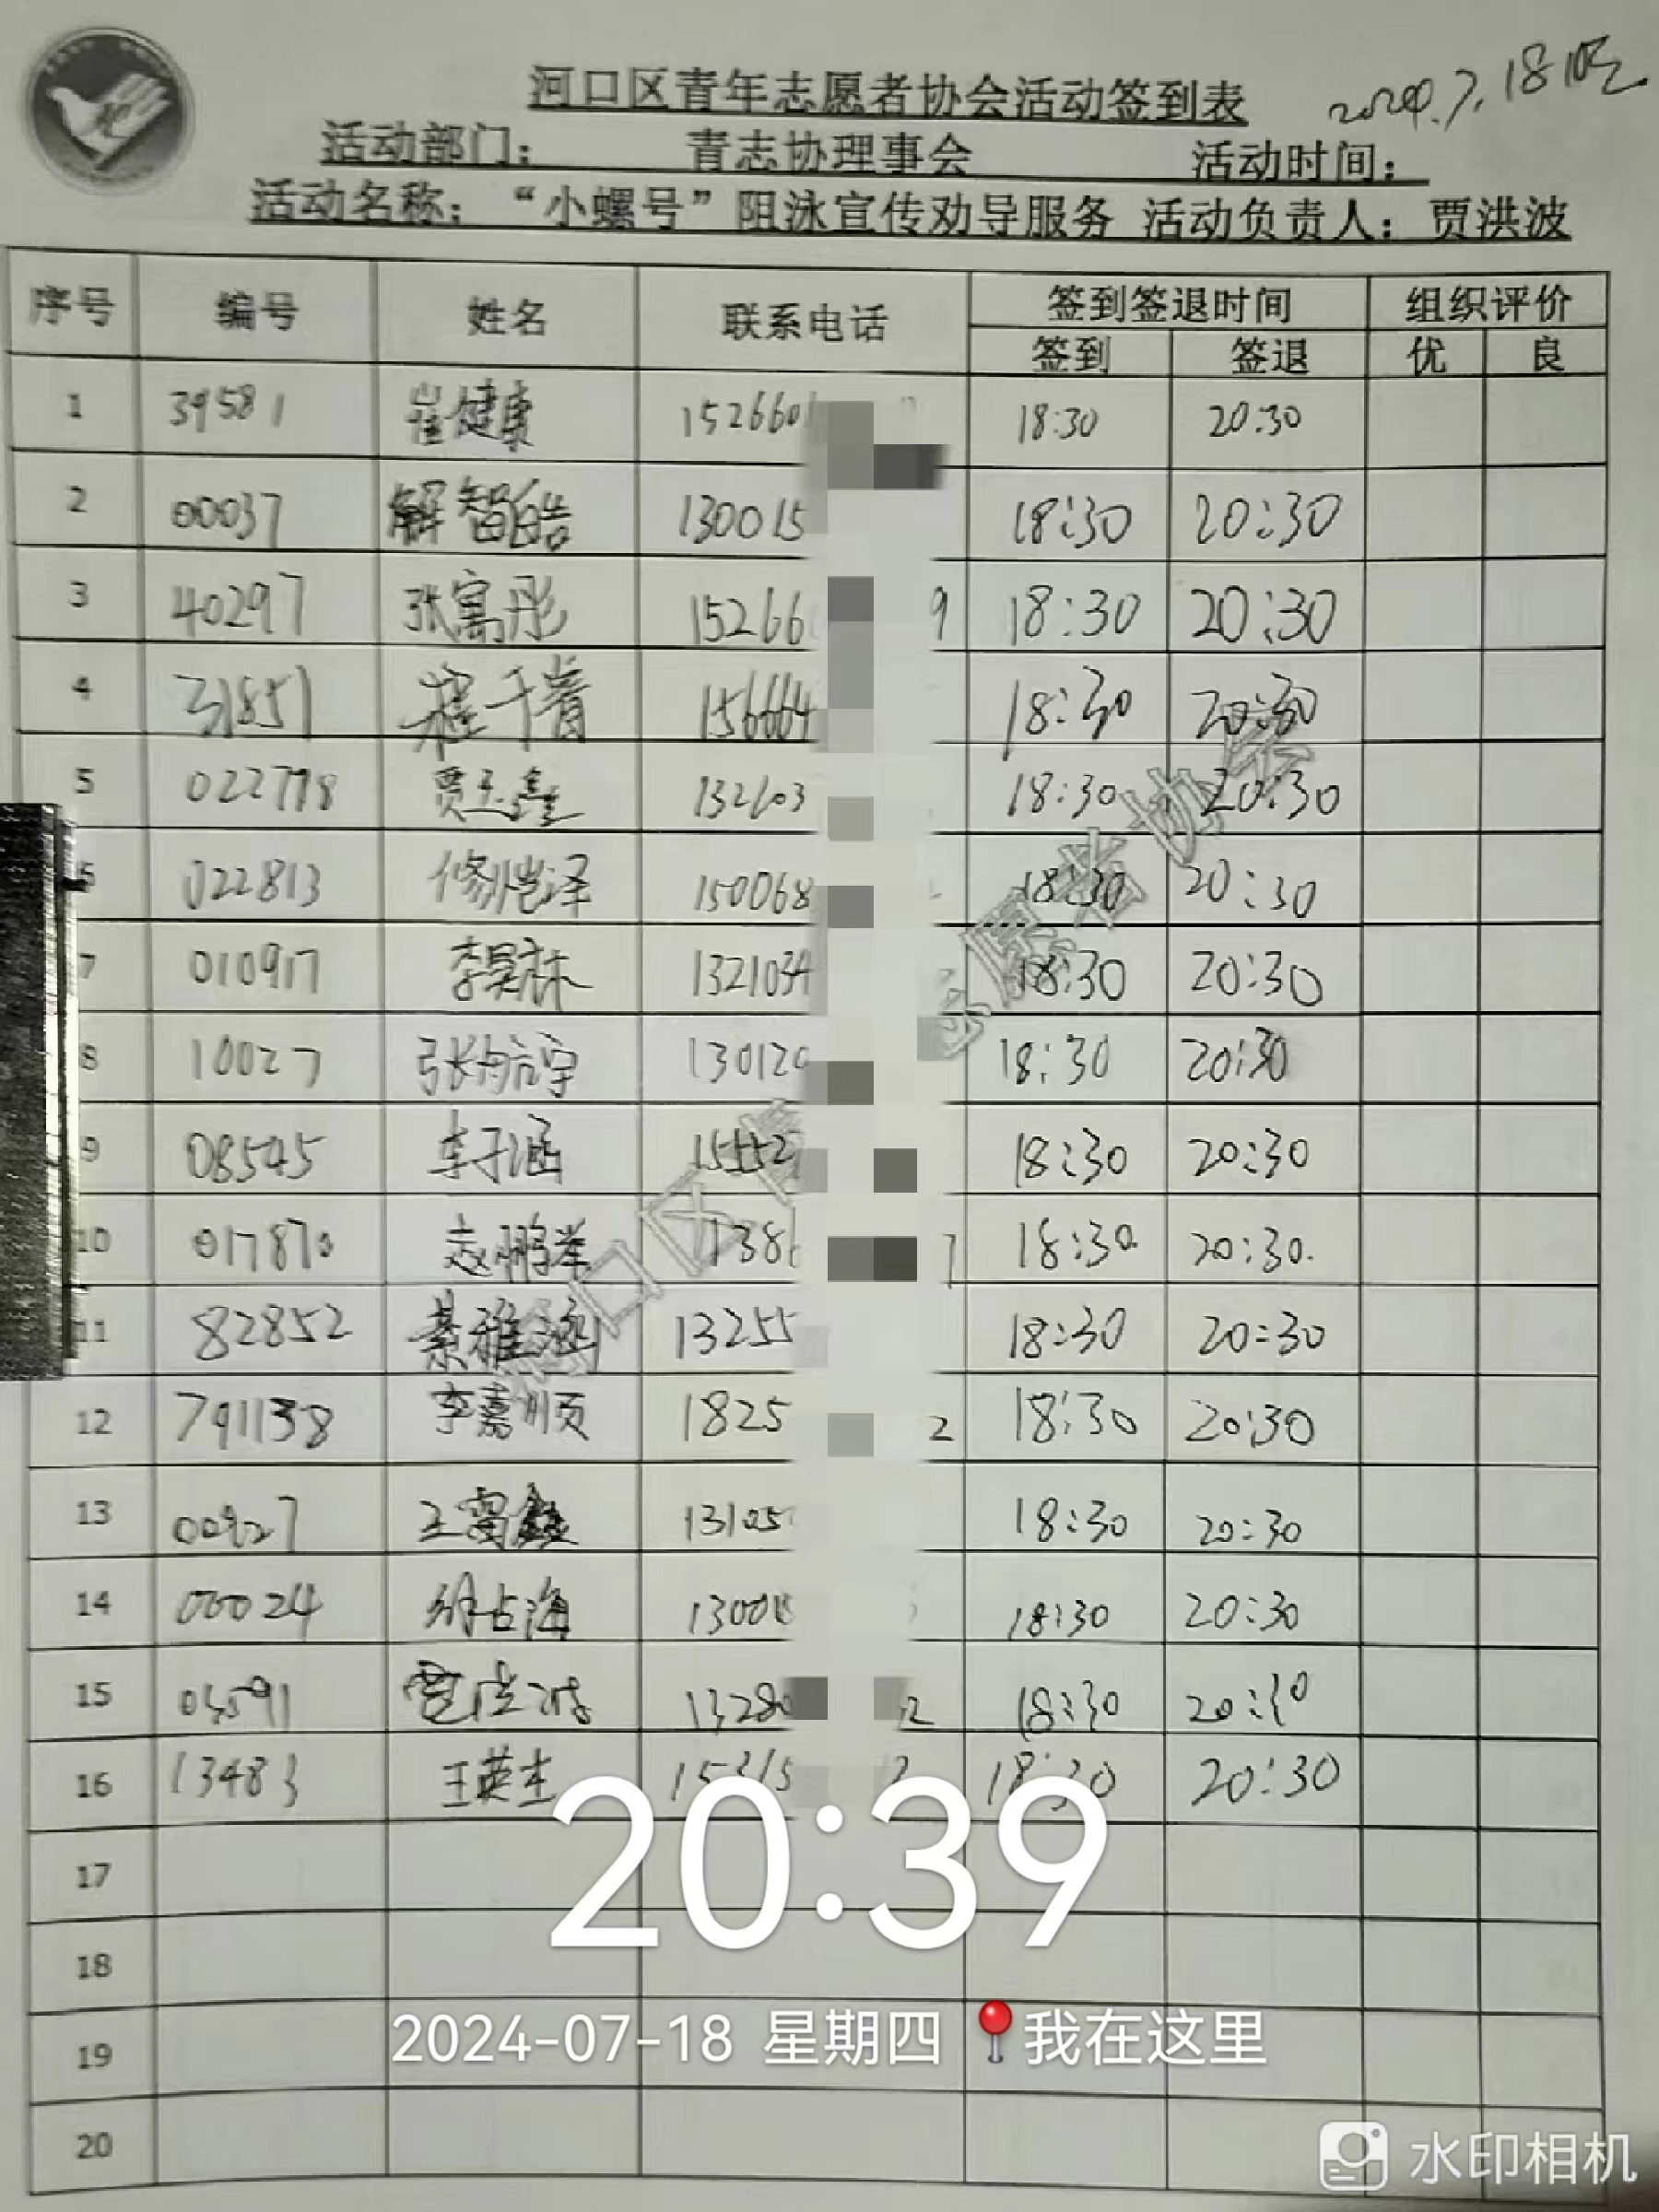 河口区青年志愿者协会活动签到表 2024.7.18晚
活动部门： 青志协理事会 活动时间：
活动名称：“小螺号”阻泳宣传劝导服务 活动负责人：贾洪波
序号 编号 姓名 联系电话 签到签退时间 组织评价
签到 签退 优 良
1 39581 崔健康 152660 18:30 20:30
2 00037 解智皓 130015 18:30 20:30
3 40297 张寓彤 15266 9 18:30 20:30
4 31851 程千 156664 18:30 20:30
5 022778 贾玉鑫 132603 18:30 20:30
6 022813 修恺泽 150068 18:30 20:30
7 010917 李昊林 1321034 18:30 20:30
8 10027 张航宇 13012 18:30 20:30
9 08545 李子涵 15552 18:30 20:30
10 017870 赵鹏举 1386 18:30 20:30
11 82852 綦雅涵 13255 18:30 20:30
12 791138 李嘉顺 1825 2 18:30 20:30
13 00927 王富鑫 13105 18:30 20:30
14 00024 徐占海 1300 18:30 20:30
15 03591 贾洪波 13280 2 18:30 20:30
16 13483 王英杰 15315 2 18:30 20:30
17
18
19
20
河口区青年志愿者协会
20:39
2024-07-18 星期四 我在这里
水印相机